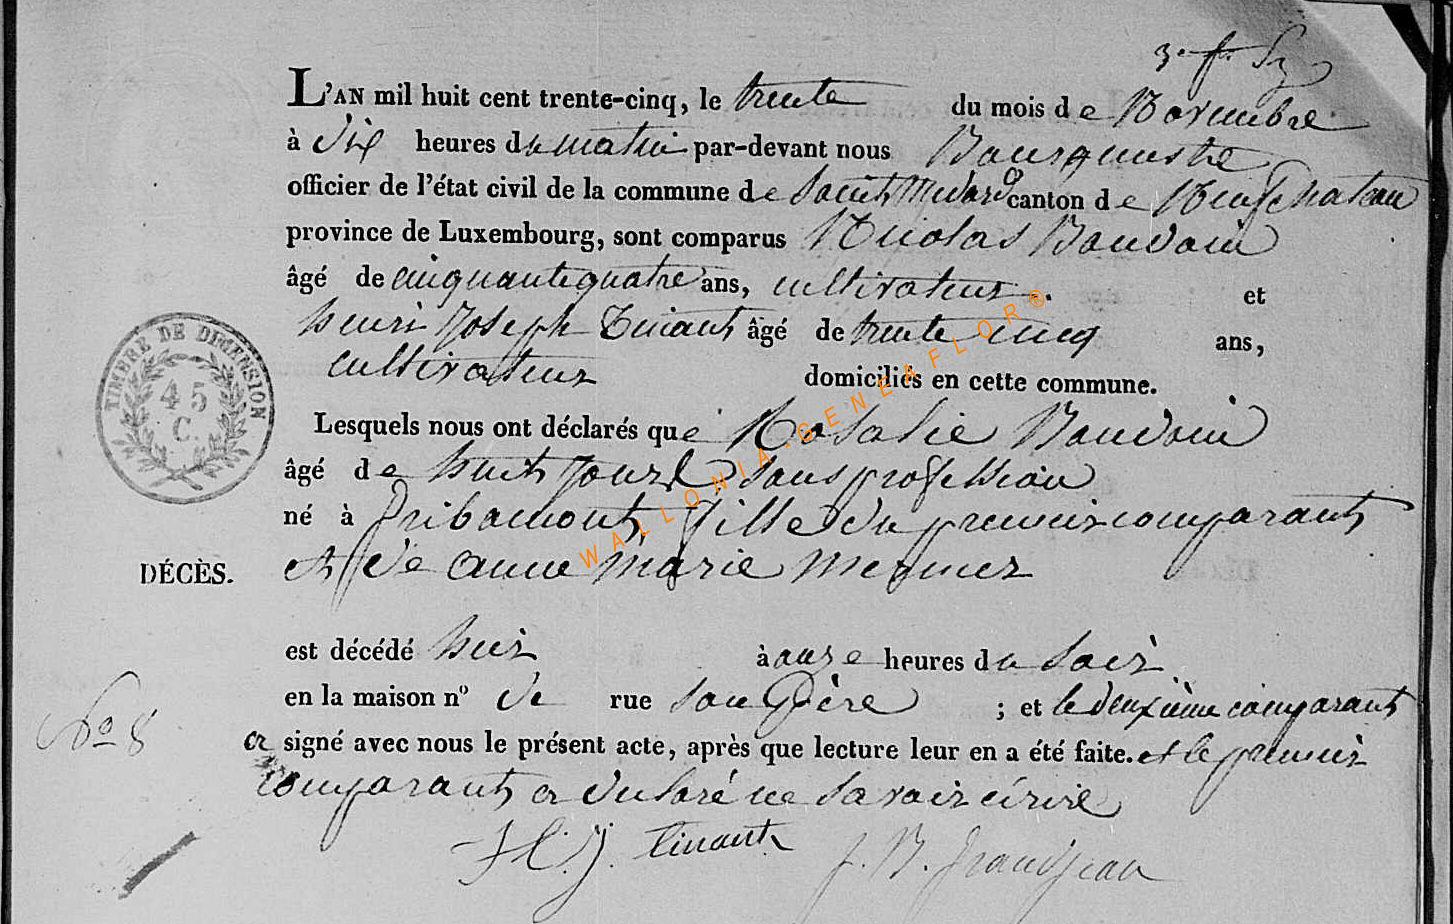 3e f. Sz
L'AN mil huit cent trente-cinq, le trente du mois de Novembre
à dix heures du matin par-devant nous Bourgmestre
officier de l'état civil de la commune de Saint Médard canton de Neufchateau
province de Luxembourg, sont comparus Nicolas Baudoin
âgé de cinquante quatre ans, cultivateur et
henri Joseph Tinant âgé de trente cinq ans,
Cultivateur domiciliés en cette commune.
Lesquels nous ont déclarés que Rosalie Baudoin
âgé de huit jours sans profession
né à Gribamont, fille du premier comparant
DÉCÈS. et de anne marie mernier
est décédé hier à onze heures du Soir
en la maison n° de rue son père ; et le deuxième comparant
a signé avec nous le présent acte, après que lecture leur en a été faite. et le premier
comparant a déclaré ne savoir écrire
H. J. Tinant J. B. Grandjean
TIMBRE DE DIMENSION
45
C.
No 8
WALLONIA-GENEAFLOR®